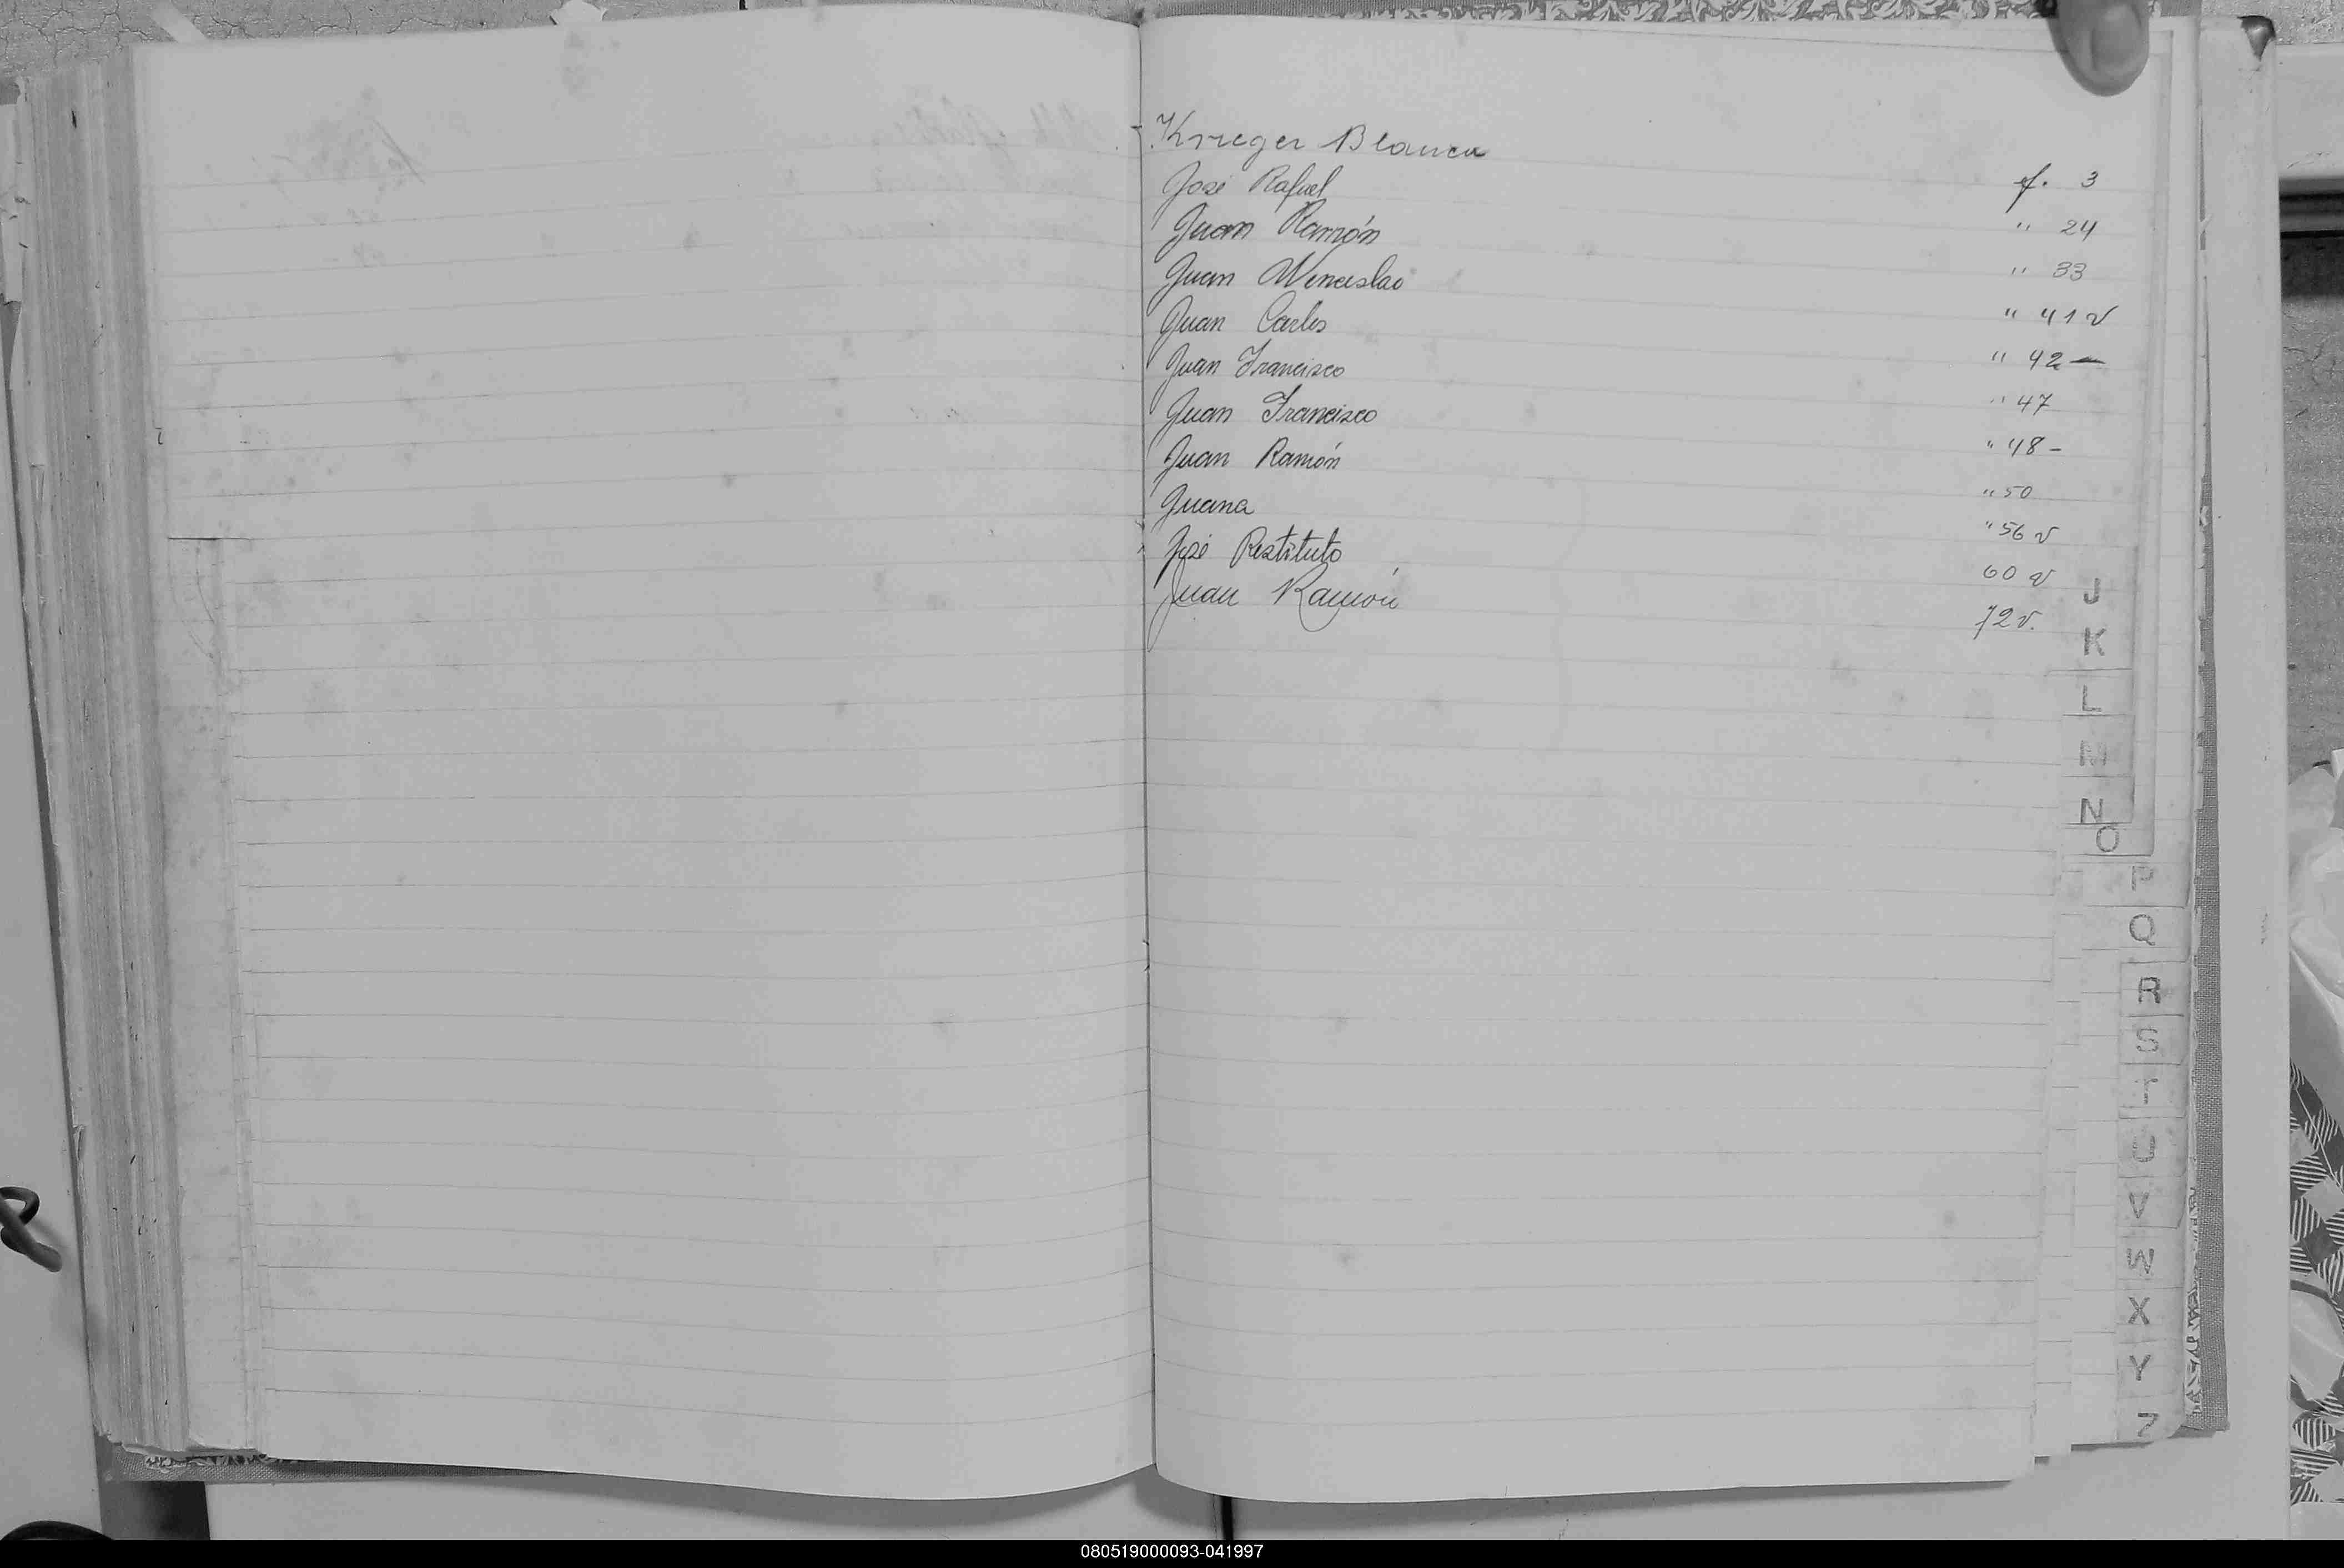 Krieger Blanca f. 3
José Rafael " 24
Juan Ramón " 33
Juan Wenceslao " 41 v
Juan Carlos " 42 —
Juan Francisco " 47
Juan Francisco " 48 -
Juan Ramón " 50
Juana " 56 v
José Restituto 60 v
Juan Ramón 72 v.
J
K
L
M
N
O
P
Q
R
S
T
U
V
W
X
Y
Z
080519000093-041997